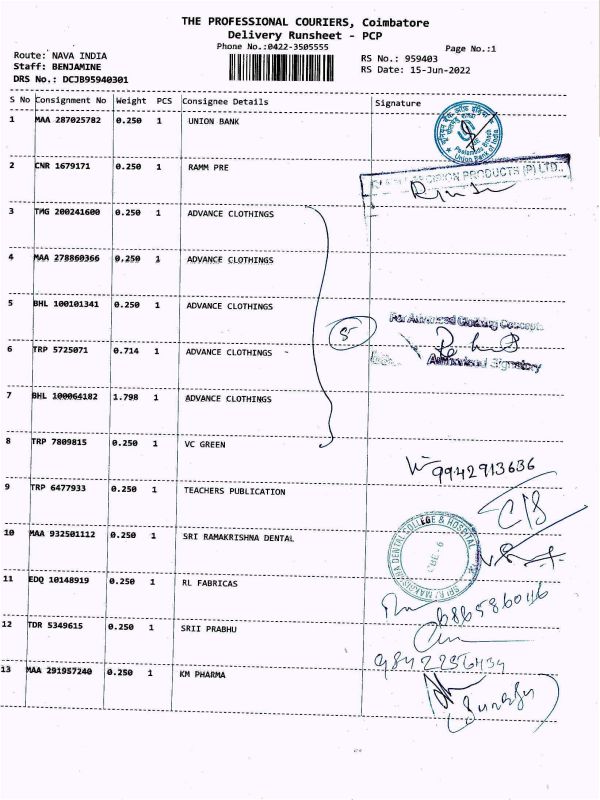 THE PROFESSIONAL COURIERS, Coimbatore
Delivery Runsheet - PCP
Phone No.:0422-3505555
Page No.:1
Route: NAVA INDIA
Staff: BENJAMINE
DRS No.: DCJB95940301
RS No.: 959403
RS Date: 15-Jun-2022
S No Consignment No Weight PCS Consignee Details Signature
1 MAA 287025782 0.250 1 UNION BANK
Union Bank of India
2 CNR 1679171 0.250 1 RAMM PRE
PRODUCTS (P) LTD.,
3 TMG 200241600 0.250 1 ADVANCE CLOTHINGS
4 MAA 278860366 0.250 1 ADVANCE CLOTHINGS
5 BHL 100101341 0.250 1 ADVANCE CLOTHINGS
For Advanced Clothing Concepts
5
6 TRP 5725071 0.714 1 ADVANCE CLOTHINGS
Authorised Signatory
7 BHL 100064182 1.798 1 ADVANCE CLOTHINGS
8 TRP 7809815 0.250 1 VC GREEN
9942913636
9 TRP 6477933 0.250 1 TEACHERS PUBLICATION
10 MAA 932501112 0.250 1 SRI RAMAKRISHNA DENTAL
DENTAL COLLEGE & HOSPITAL
11 EDQ 10148919 0.250 1 RL FABRICAS
12 TDR 5349615 0.250 1 SRII PRABHU
13 MAA 291957240 0.250 1 KM PHARMA